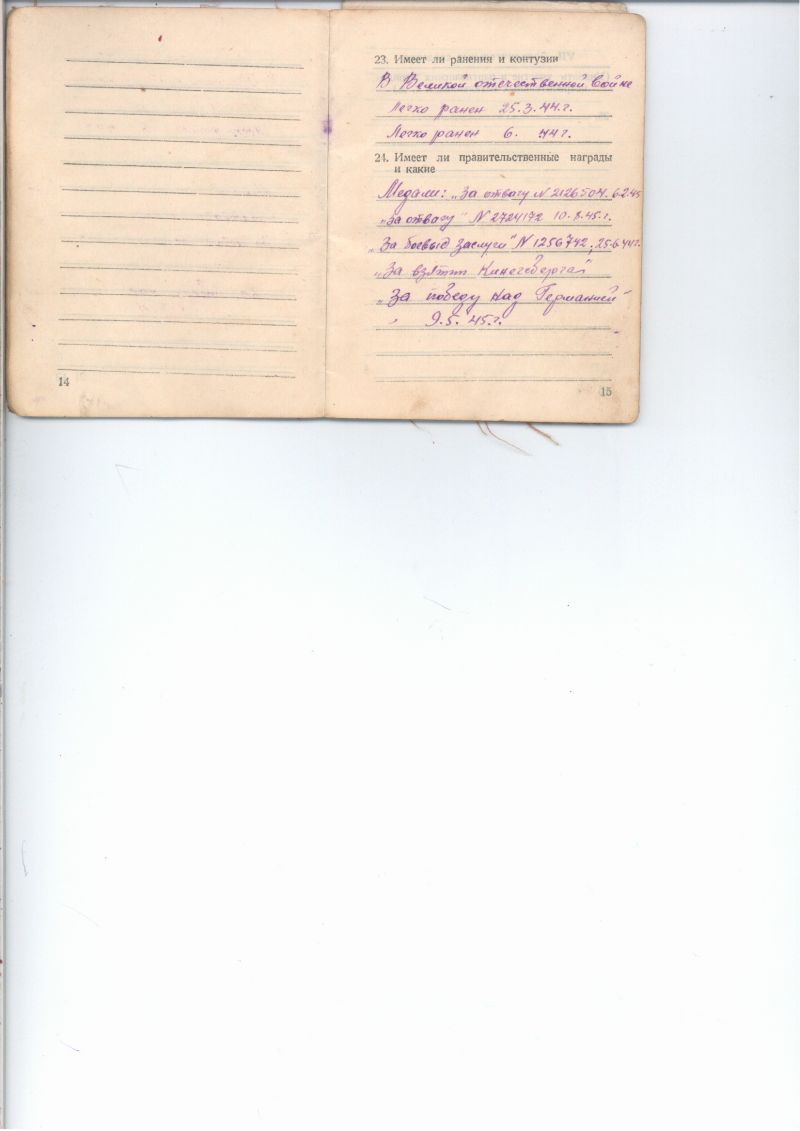 23. Имеет ли ранения и контузии
В Великой отечественной войне
Легко ранен 25.3.44.г.
Легко ранен 6. 44г.
24. Имеет ли правительственные награды
и какие
Медали: „За отвагу N 2126504. 6.2.45
„За отвагу" N 2724172 10.8.45.г.
„За боевыд заслуги" N 1256742, 25.6.44г.
„За взятии Кинегсберга"
„За победу над Германией"
" 9.5.45.г.
14
15